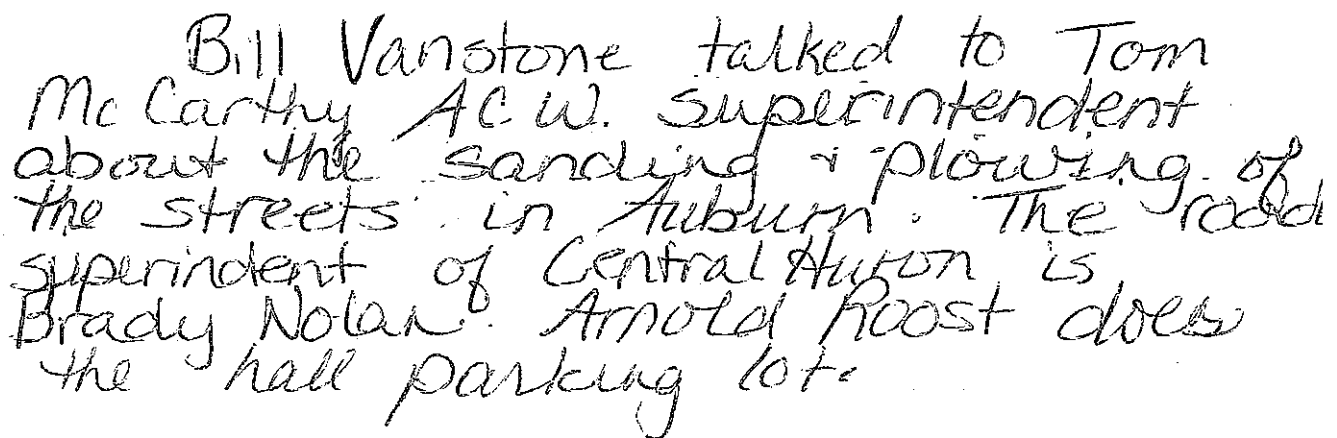 Bill Vanstone talked to Tom
McCarthy ACW. superintendent
about the sanding & plowing of
the streets in Auburn. The road
superindent of Central Huron is
Brady Nolan. Arnold Roost does
the hall parking lot.